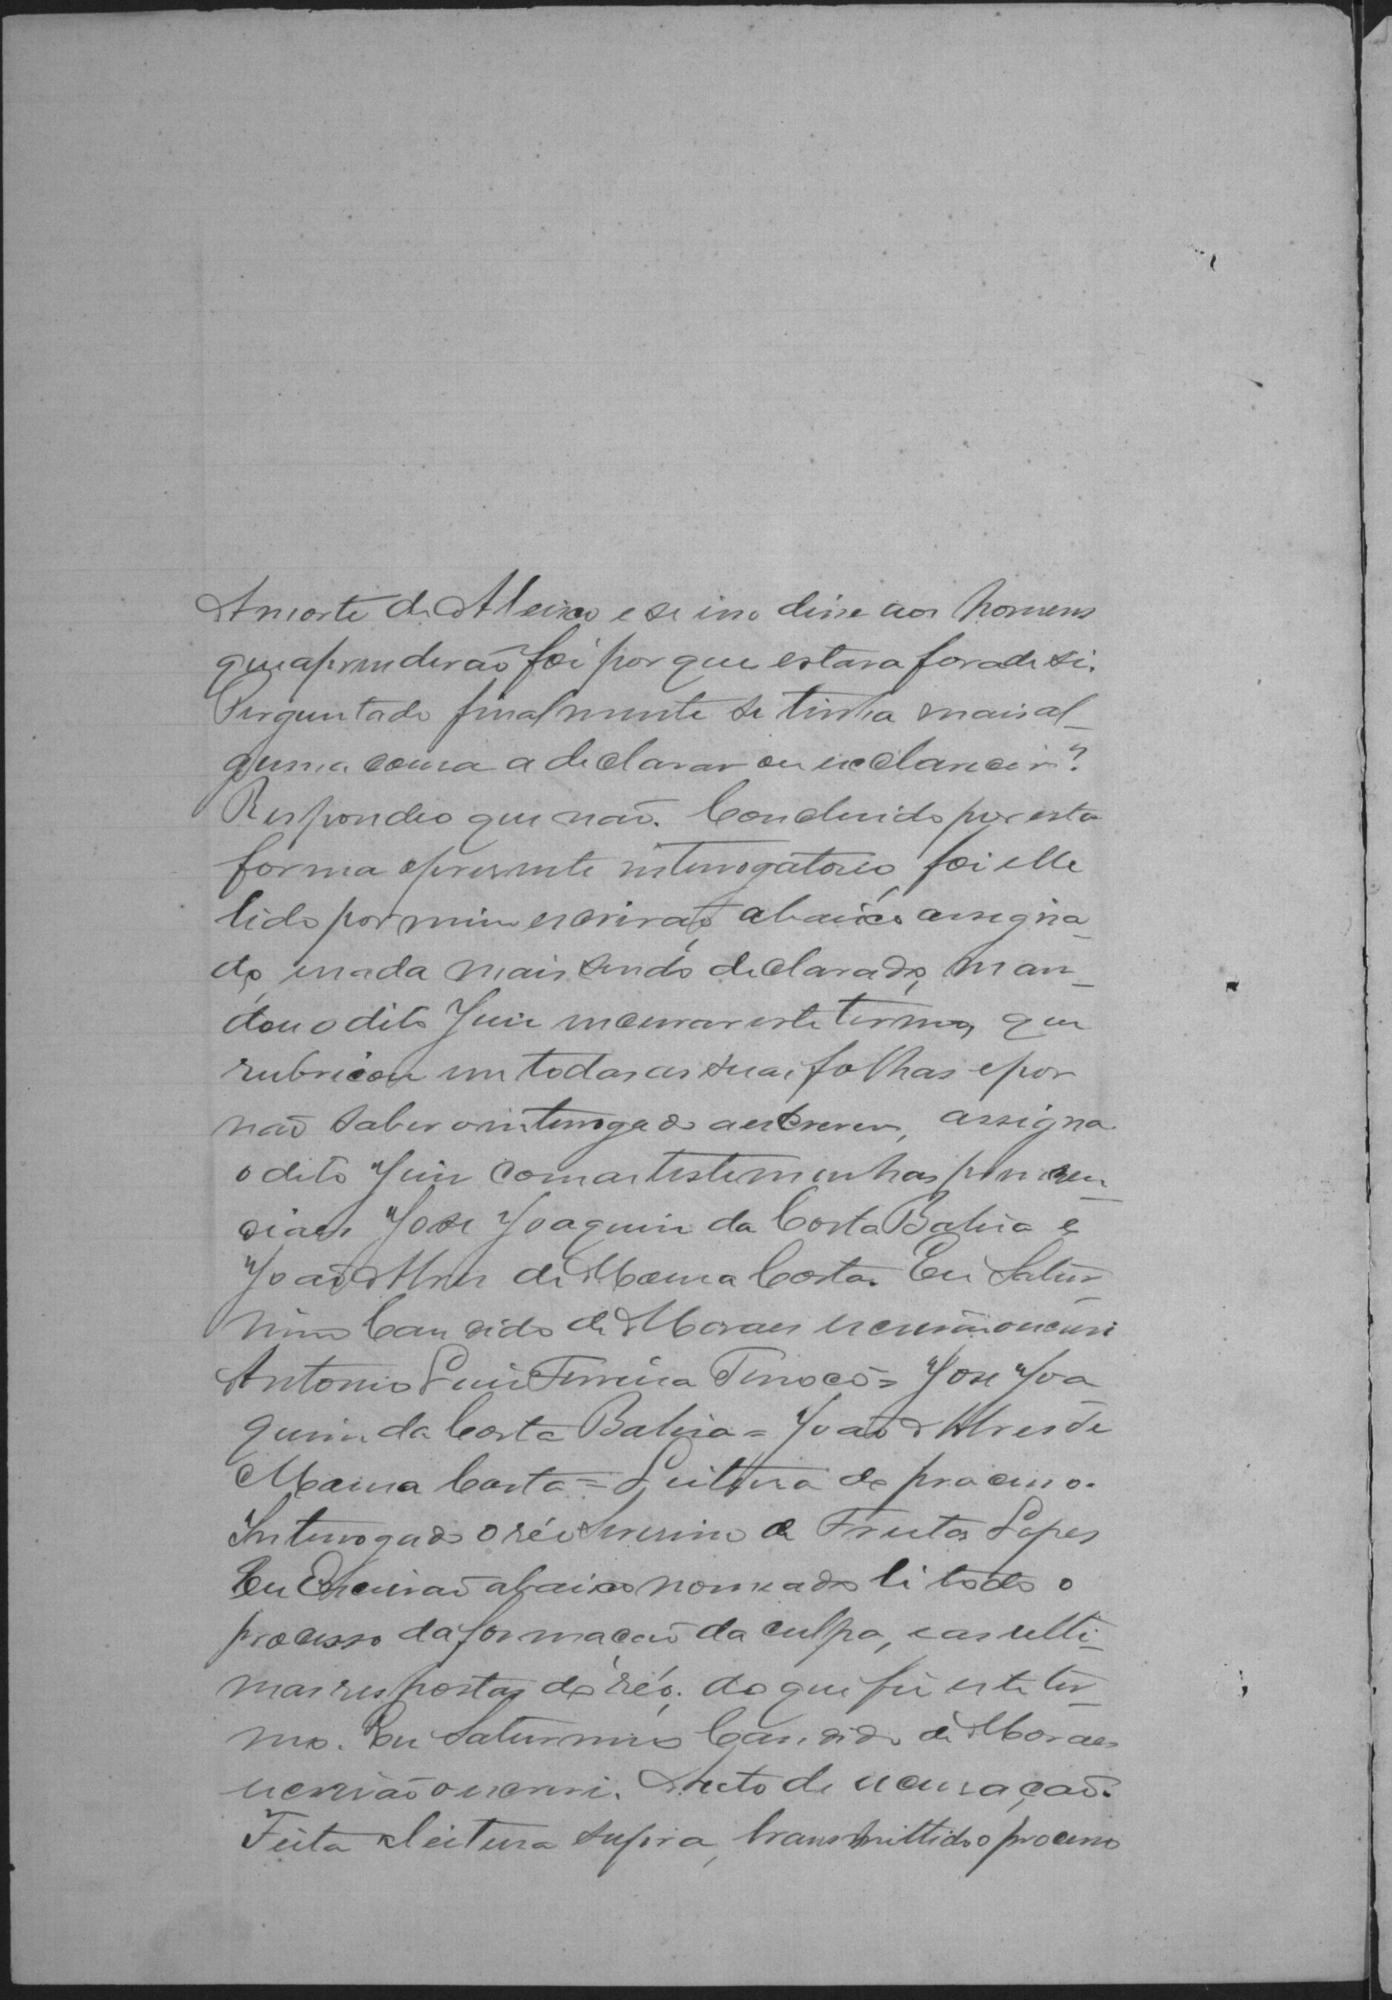 A morte de Aleixo e se isso disse aos homens
que aprenderão foi por que estava fora de si.
Perguntado finalmente se tinha mais al_
guma cousa a declarar ou esclarecer?
Respondeo que não. Concluido por esta
forma o presente interrogatorio, foi elle
lido por mim escrivão, abaixo assigna_
do, e nada mais sendo declarado, man_
dou o dito Juiz encerrar este termo, que
rubricou em todas as suas folhas e por
não saber o interrogado a escrever, assigna
o dito Juiz com as testemunhas presen_
ciaes José Joaquim da Costa Bahia e
João Alves de Moura Costa. Eu Satur_
nino Candido de Moraes escrivão o escrevi
Antonio Luiz Ferreira Tinoco = José Joa_
quim da Costa Bahia = João Alves de
Moura Costa = Leitura do processo.
Interrogado o réo Severino de Freitas Lopes
Eu Escrivão abaixo nomeado li todo o
processo da formação da culpa, e as ulti_
mas respostas do réo. do que fiz este ter_
mo. Eu Saturnino Candido de Moraes
escrivão o escrevi. Auto de accusação.
Feita a leitura supra, transmittido o processo